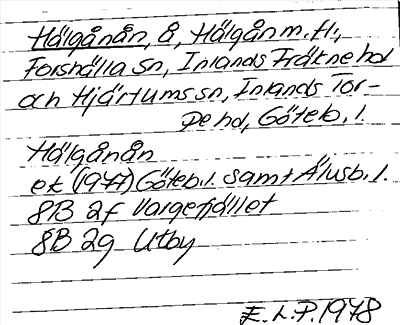 Hälgånån, å, Hälgån m. fl.,
Forshälla sn, Inlands Fräkne hd
och Hjärtums sn, Inlands Tor-
pe hd, Göteb. l.
Hälgånån
ek (1977) Göteb. l. samt Älvsb. l.
8B 2f Vargefjället
8B 2g Utby
E. L. P. 1978